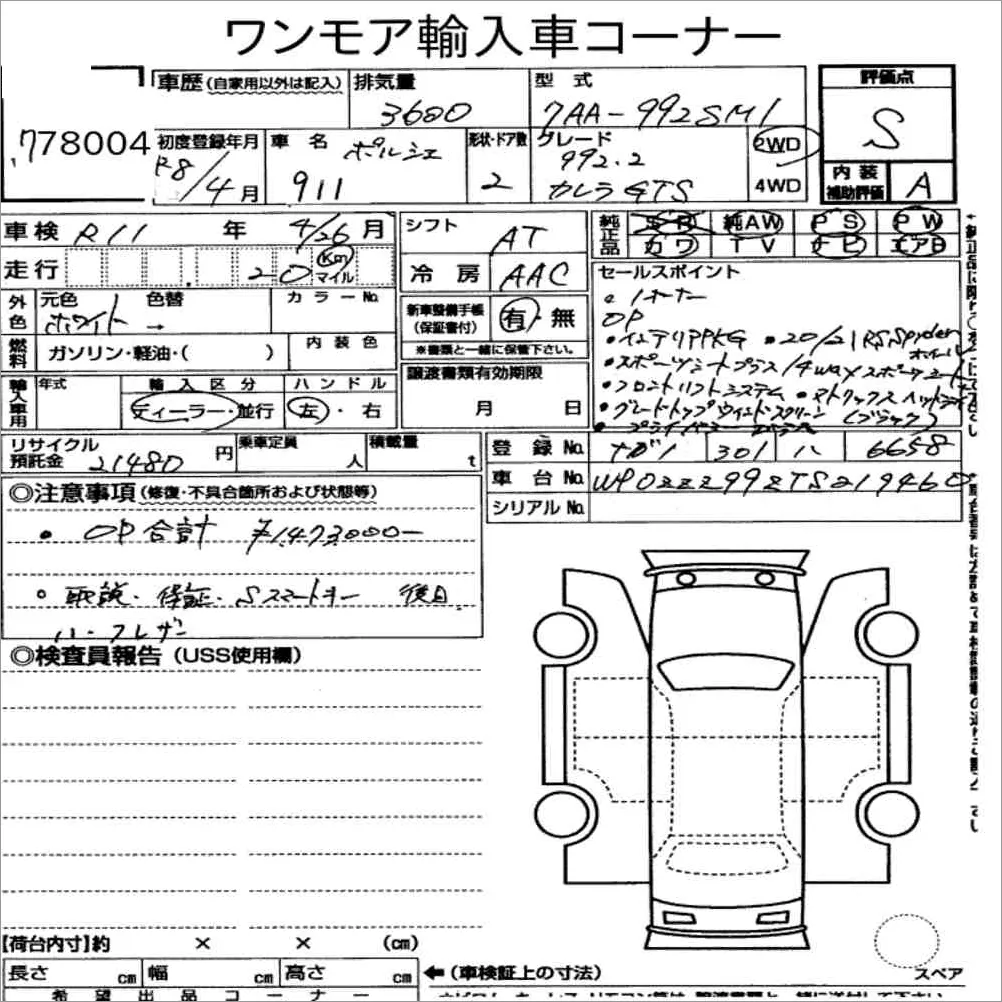 ワンモア輸入車コーナー
778004
車歴(自家用以外は記入)
排気量
3600
型式
7AA-992SM1
評価点
S
初度登録年月
R8/4月
車名
ポルシェ
911
形状・ドア数
2
グレード
992.2
カレラGTS
2WD
4WD
内装
補助評価
A
車検 R11 年 4/26 月
走行 20 Km マイル
シフト
AT
冷房 AAC
純正品
SR 純AW PS PW
カワ TV ナビ エアB
外色
元色
ホワイト
色替
→
カラーNo.
燃料 ガソリン・軽油・( )
内装色
新車整備手帳
(保証書付)
有・無
※書類と一緒に保管下さい。
輸入車用
年式
輸入区分
ディーラー・並行
ハンドル
左・右
譲渡書類有効期限
月 日
セールスポイント
1オーナー
OP
・インテリアPKG ・20/21RSSpyderホイール
・スポーツシートプラス14wayスポーツシート
・フロントリフトシステム ・マトリックスヘッドライト
・グレートップウインドスクリーン (ブラック)
リサイクル
預託金
21480 円
乗車定員
人
積載量
t
登録No. 301 ハ 6658
車台No. WP0ZZZ99ZTS219460
シリアルNo.
◎注意事項(修復・不具合箇所および状態等)
・OP合計 ¥1473000-
・取説・保証・Sスマートキー 後日
ハーフレザー
◎検査員報告(USS使用欄)
【荷台内寸】約 × × (cm)
長さ cm 幅 cm 高さ cm
←(車検証上の寸法)
スペア
希望出品コーナー